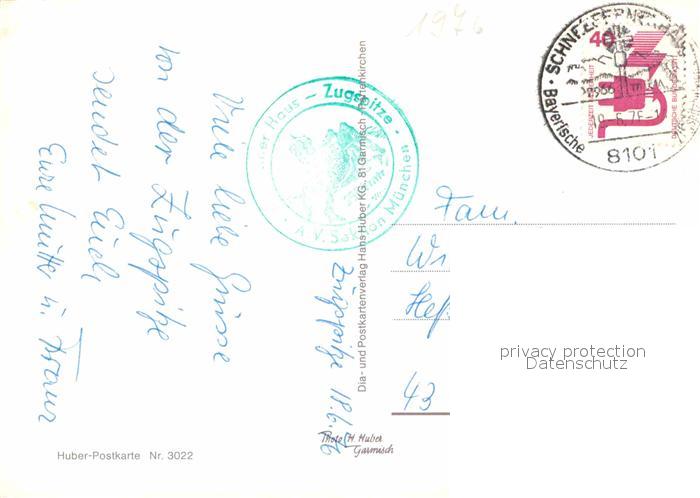 1976
40
SCHNEEFERNERHAUS
Bayerische
8101
JEDERZEIT SICHERHEIT
DEUTSCHE BUNDESPOST
Haus – Zugspitze
A.V. Sektion München
Zugspitze 18.6.76
Viele liebe Grüsse
von der Zugspitze
sendet Euch
Eure Mutter u. Franz
Dia- und Postkartenverlag Hans Huber KG, 81 Garmisch-Partenkirchen
Fam.
43
privacy protection
Datenschutz
Photo H. Huber
Garmisch
Huber-Postkarte Nr. 3022